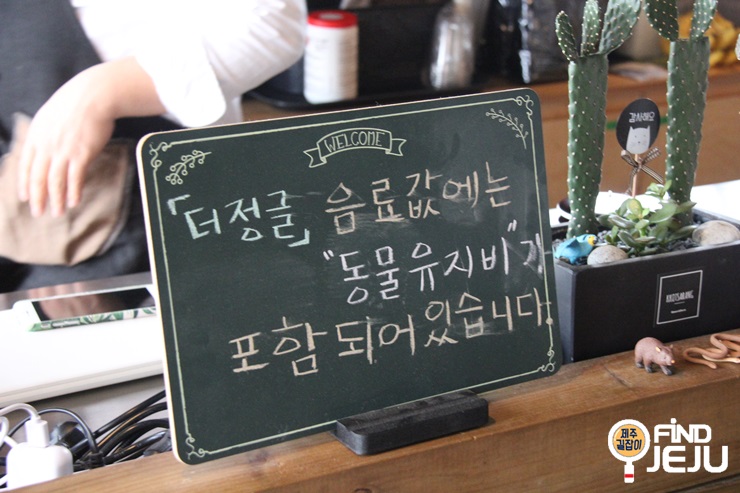 WELCOME
「더정글」 음료값에는
"동물유지비"가
포함되어있습니다.
감사해요
제주
길잡이
FIND
JEJU